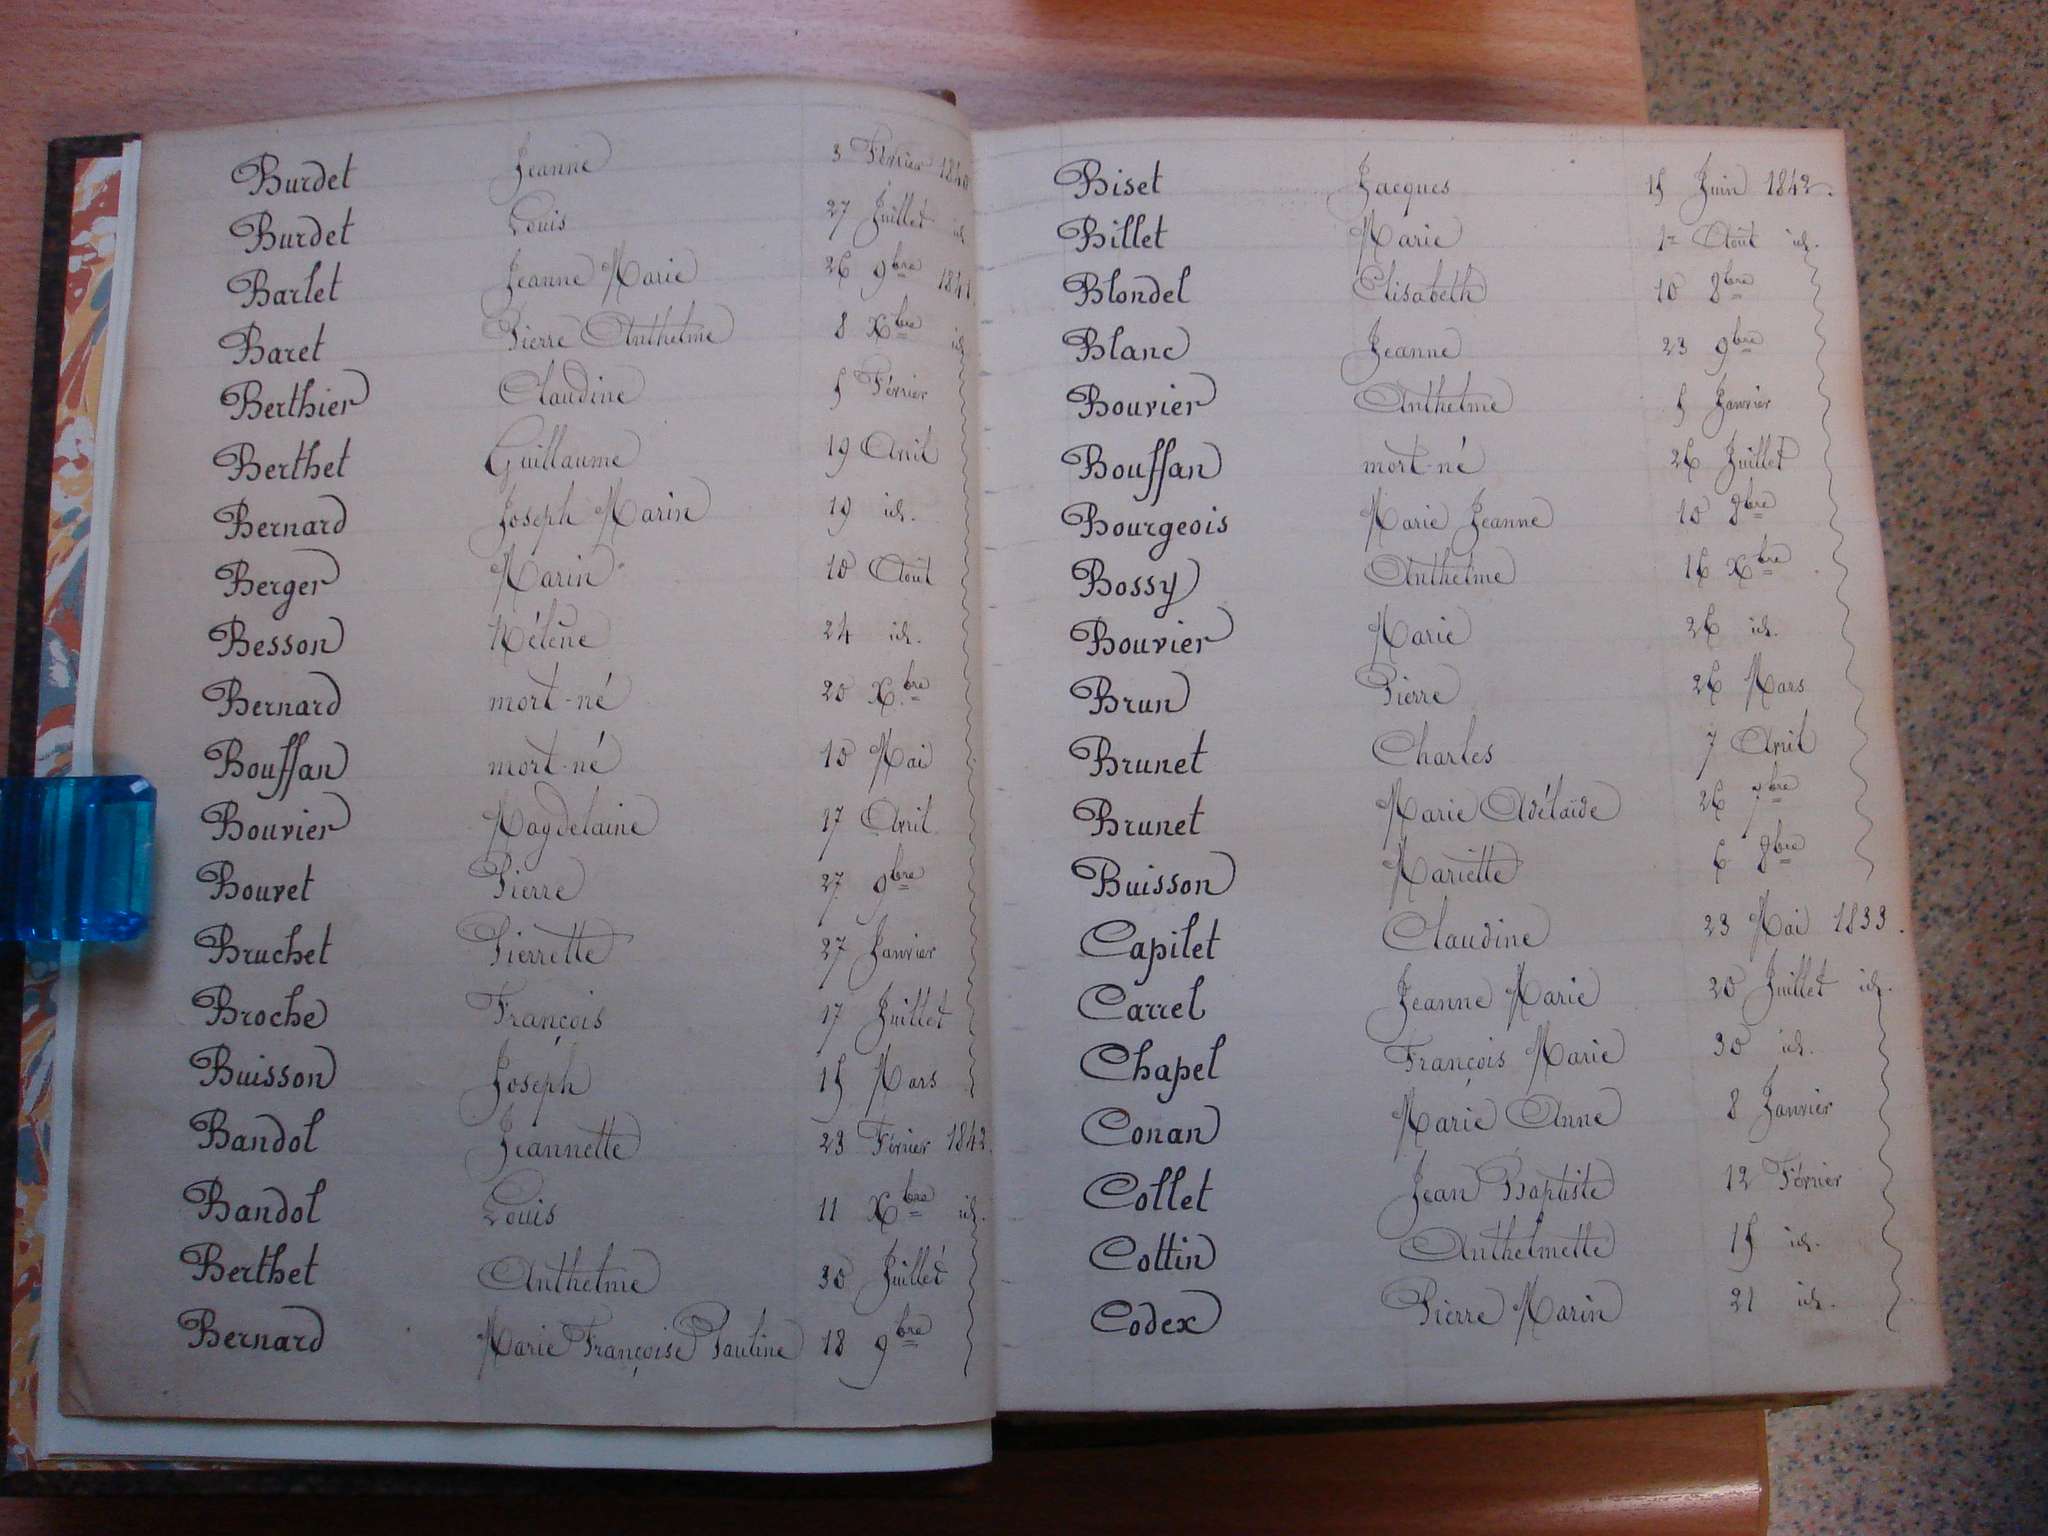 Burdet Jeanne 3 Février 1840
Burdet Louis 27 Juillet id.
Barlet Jeanne Marie 26 9bre 1841
Baret Pierre Anthelme 8 Xbre id.
Berthier Claudine 5 Février
Berthet Guillaume 19 Avril
Bernard Joseph Marin 19 id.
Berger Marin 10 Août
Besson Hélène 24 id.
Bernard mort-né 20 Xbre
Bouffan mort-né 10 Mai
Bouvier Magdelaine 17 Avril
Bouvet Pierre 27 9bre
Bruchet Pierrette 27 Janvier
Broche François 17 Juillet
Buisson Joseph 15 Mars
Bandol Jeannette 23 Février 1842.
Bandol Louis 11 Xbre id.
Berthet Anthelme 30 Juillet
Bernard Marie Françoise Pauline 18 9bre
Biset Jacques 15 Juin 1842.
Billet Marie 1er Août id.
Blondel Elisabeth 10 8bre
Blanc Jeanne 23 9bre
Bouvier Anthelme 5 Janvier
Bouffan mort-né 26 Juillet
Bourgeois Marie Jeanne 10 8bre
Bossy Anthelme 16 Xbre
Bouvier Marie 26 id.
Brun Pierre 26 Mars
Brunet Charles 7 Avril
Brunet Marie Adélaïde 26 7bre
Buisson Mariette 6 8bre
Capilet Claudine 23 Mai 1833.
Carrel Jeanne Marie 20 Juillet id.
Chapel François Marie 30 id.
Conan Marie Anne 8 Janvier
Collet Jean Baptiste 12 Février
Cottin Anthelmette 15 id.
Codex Pierre Marin 21 id.